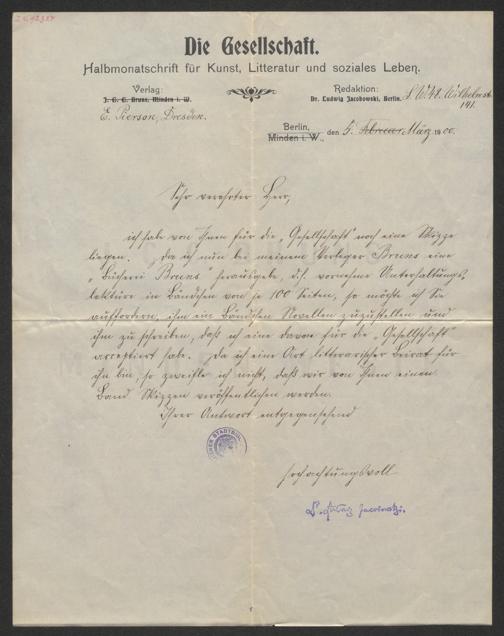 Die Gesellschaft.
Halbmonatschrift für Kunst, Litteratur und soziales Leben.
Verlag:
J. C. C. Bruns, Minden i. W.
E. Pierson, Dresden.
Redaktion:
Dr. Ludwig Jacobowski, Berlin. S.W. 48. Wilhelmstr.
141.
Berlin,
Minden i. W., den 5. Februar März 1900.
Sehr verehrter Herr,
ich habe von Ihnen für die „Gesellschaft" noch eine Skizze
liegen. Da ich nun bei meinem Verleger Bruns eine
„Bücherei Bruns" herausgebe, d.h. vornehme Unterhaltungs-
lektüre in Bändchen von je 100 Seiten, so möchte ich Sie
auffordern, ihm ein Bändchen Novellen zuzustellen und
ihm zu schreiben, daß ich eine davon für die „Gesellschaft"
acceptiert habe. Da ich eine Art litterarischer Beirat für
ihn bin, so zweifle ich nicht, daß wir von Ihnen einen
Band Skizzen veröffentlichen werden.
Ihrer Antwort entgegensehend
hochachtungsvoll
Dr. Ludwig Jacobowski.